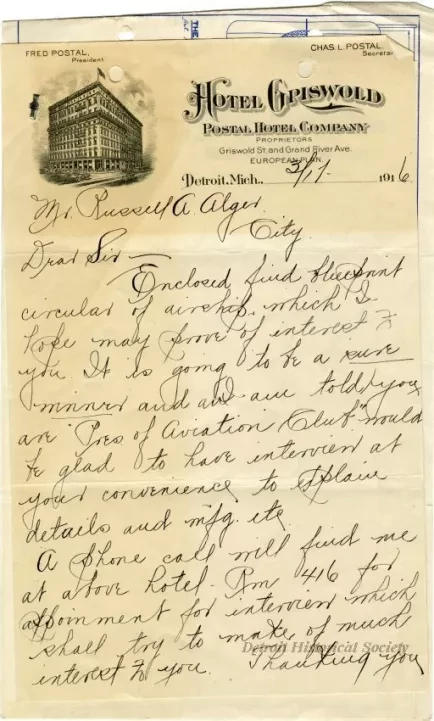 THE
FRED POSTAL,
President
CHAS. L. POSTAL
Secretar
HOTEL GRISWOLD
POSTAL HOTEL COMPANY
PROPRIETORS
Griswold St. and Grand River Ave.
EUROPEAN PLAN.
Detroit, Mich., 3/7. 1916
Mr. Russell A. Alger
City.
Dear Sir —
Enclosed find blueprint
circular of airship, which I
hope may prove of interest to
you. It is going to be a sure
winner and am told you
are "Pres of Aviation Club" would
be glad to have interview at
your convenience to explain
details and mfg. etc
A phone call will find me
at above hotel - Rm 416 for
appoinment for interview which
shall try to make of much
interest to you. Thanking you
Detroit Historical Society